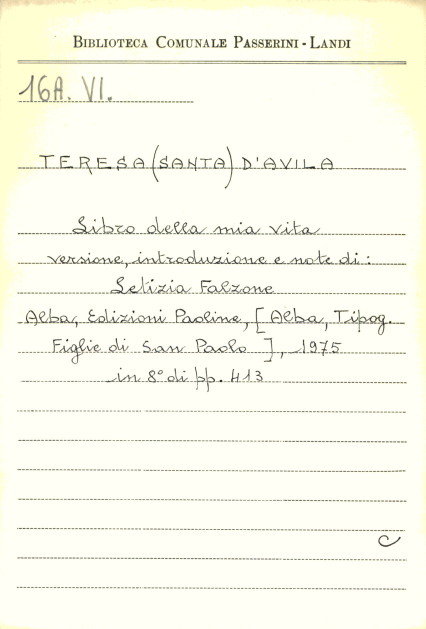 BIBLIOTECA COMUNALE PASSERINI-LANDI
16A. VI.
TERESA (SANTA) D'AVILA
Libro della mia vita
versione, introduzione e note di:
Letizia Falzone
Alba, Edizioni Paoline, [Alba, Tipog.
Figlie di San Paolo], 1975
in 8° di pp. 413
C